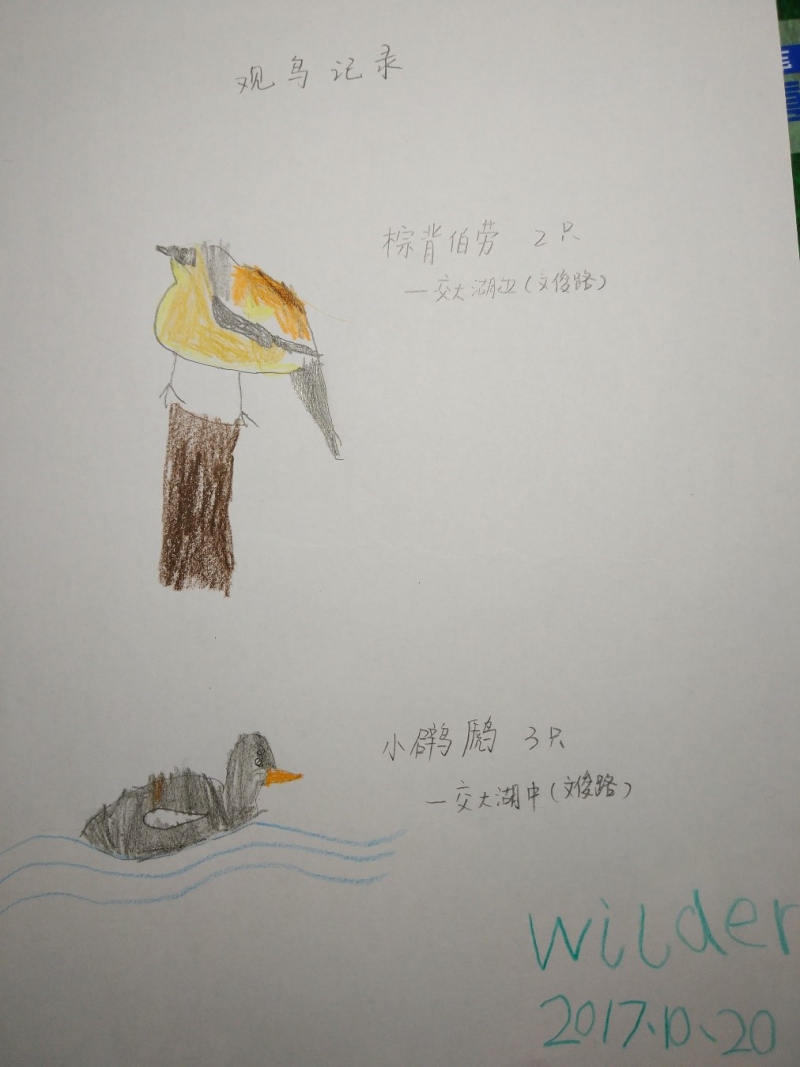 观鸟记录
棕背伯劳 2只
—交大湖边(文俊路)
小鸊鷉 3只
—交大湖中(文俊路)
wilder
2017.10.20